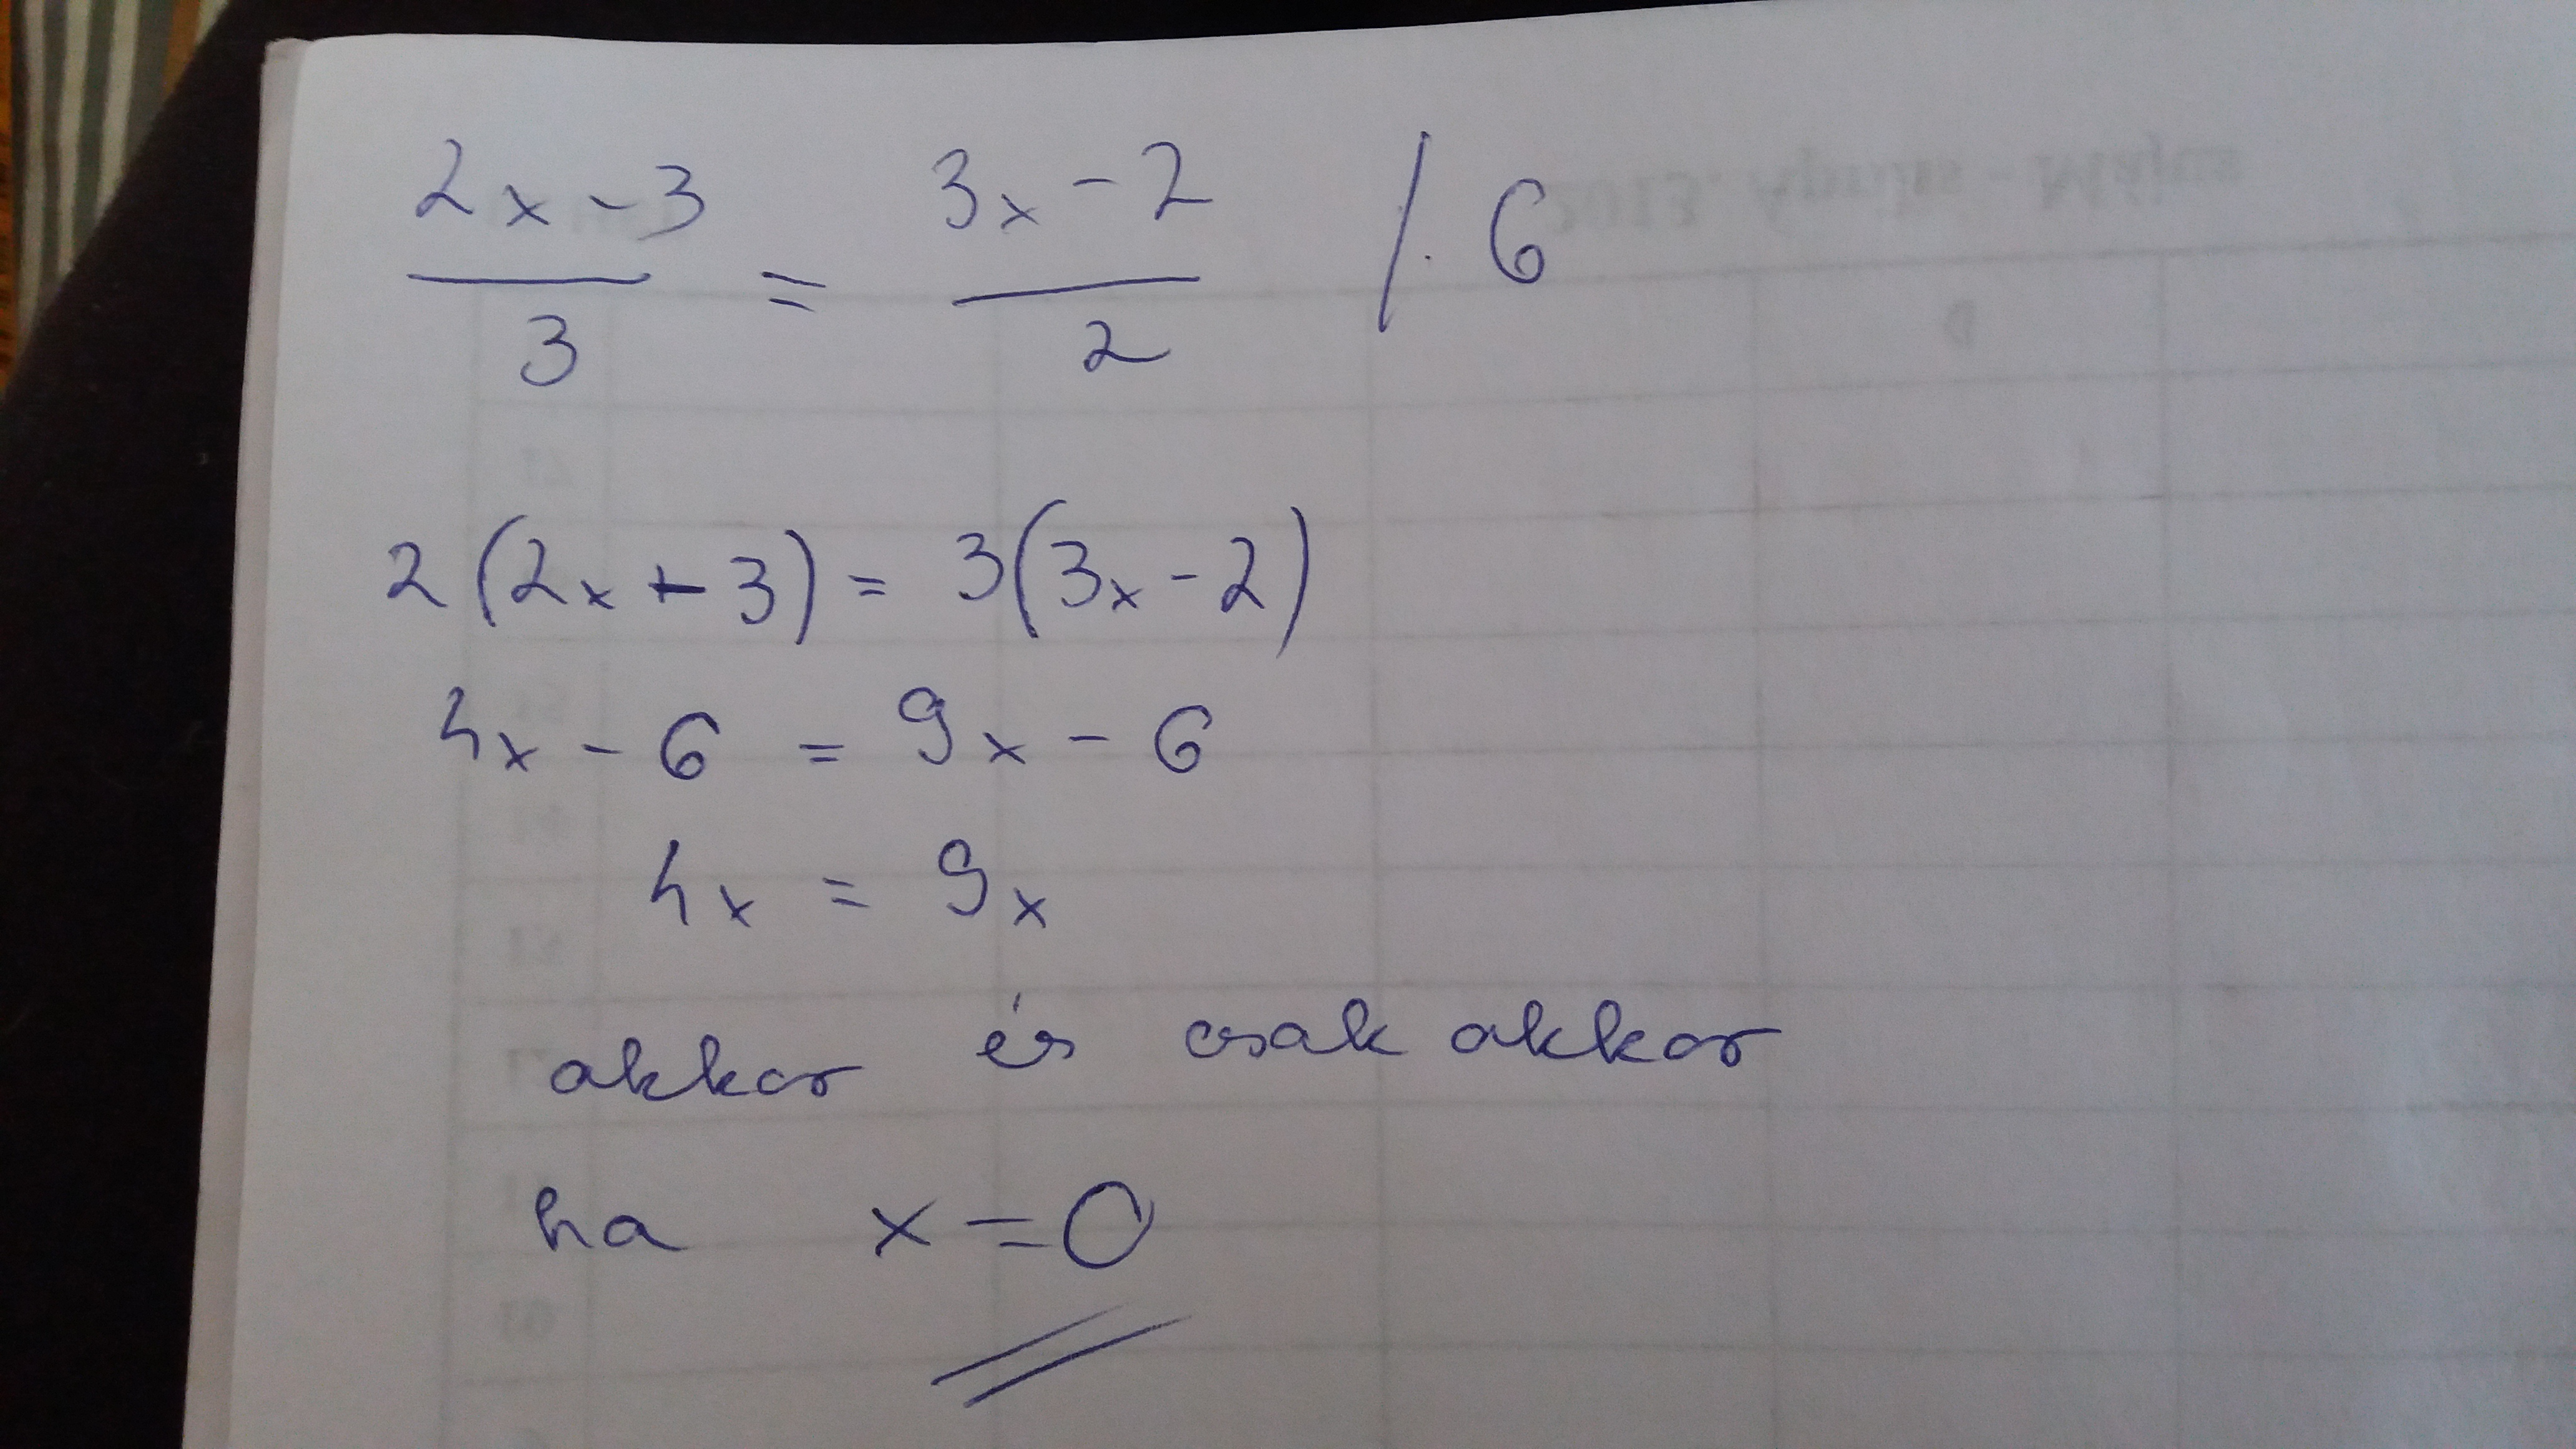 2x-3 / 3 = 3x-2 / 2 /.6
2(2x+3) = 3(3x-2)
4x-6 = 9x-6
4x = 9x
akkor és csak akkor
ha x=0